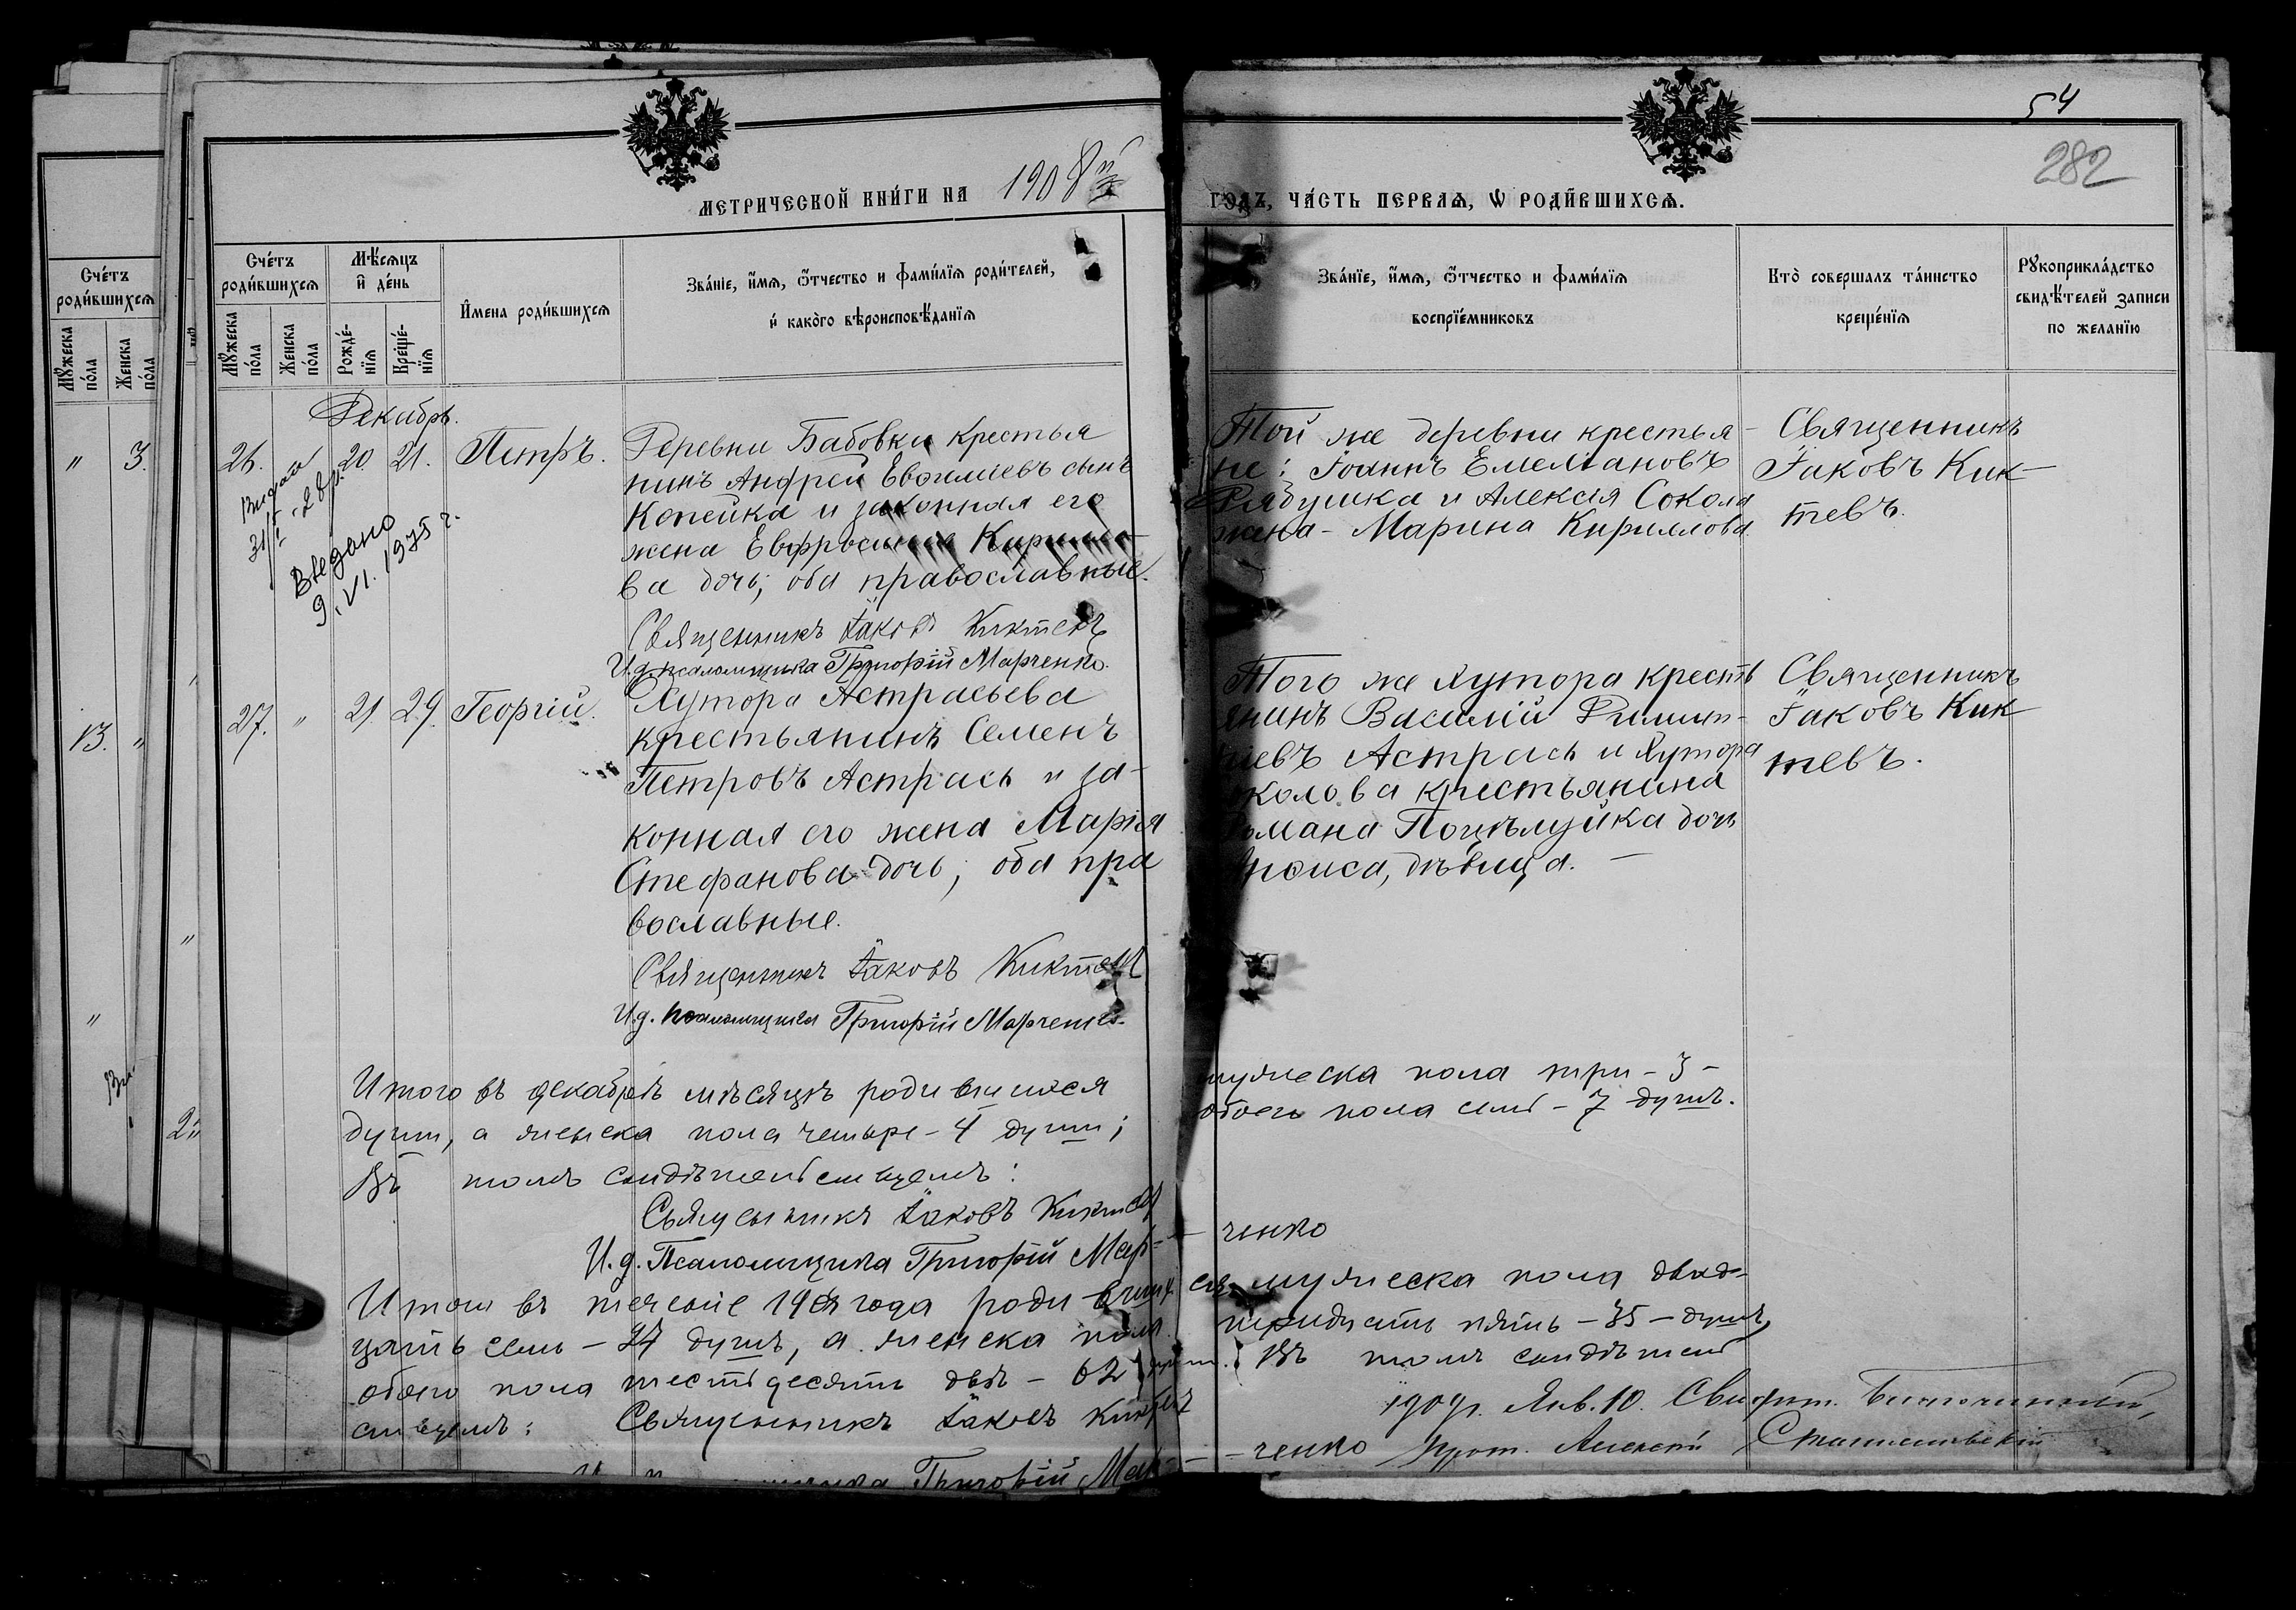 54
282
МЕТРИЧЕСКОЙ КНИ́ГИ НА 1908й
ГОДЪ, ЧА́СТЬ ПЕРВАѦ, Ѡ РОДИ́ВШИХСѦ.
Сче́тъ роди́вшихсѧ
Мꙋ́жеска по́ла
Же́нска по́ла
Сче́тъ роди́вшихсѧ
Мꙋ́жеска по́ла
Же́нска по́ла
Мѣ́сѧцъ и҆ де́нь
Рожде́-нїѧ
Креще́-нїѧ
И҆мена роди́вшихсѧ
Зва́нїе, и҆́мѧ, ѻ҆́тчество и фами́лїѧ роди́телей,
и҆ како́гѡ вѣроисповѣ́данїѧ
Зва́нїе, и҆́мѧ, ѻ҆́тчество и фами́лїѧ
воспрїе́мниковъ
Кто̀ соверша́лъ та́инство
креще́нїѧ
Рꙋкоприкла́дство
свидѣ́телей записи
по жела́нїю
" 3.
13. "
"
"
2
Декабрь.
26. 20. 21. Петръ.
Видано
31/I - 28 р.
Введано
9.VI.1975 г.
Деревни Бабовки крестья
нинъ Андрей Евѳимиевъ сынъ
Копейка и законная его
жена Евфросинія Кирилло-
ва дочь; оба православные.
Священникъ Іаковъ Киктевъ
И.д. псаломщика Григорій Марченко.
Той же деревни крестья-
не: Іоаннъ Емеліановъ
Рябушка и Алексія Сокола
жена - Марина Кириллова.
Священникъ
Іаковъ Кик-
тевъ.
27. " 21. 29. Георгій.
Хутора Астрасьева
крестьянинъ Семенъ
Петровъ Астрась и за-
конная его жена Марія
Стефанова дочь; оба пра
вославные.
Священникъ Іаковъ Киктевъ
И.д. псаломщика Григорій Марченко.
Того же хутора кресть
янинъ Василій
Астрась и хутора
колова крестьянина
Романа Поцѣлуйка дочь
дѣвица.
Священникъ
Іаковъ Кик
тевъ.
Итого въ декабрѣ мѣсяцѣ родившихся мужеска пола три - 3 -
души, а женска пола четыре - 4 души; обоего пола семь - 7 душъ.
Въ томъ свидѣтельствуемъ:
Священникъ Іаковъ Киктевъ
И.д. Псаломщика Григорій Мар-ченко
Итого въ теченіе 1908 года родившихся мужеска пола двад-
цать семь - 27 душъ, а женска пола тридцать пять - 35 - душъ,
обоего пола шестьдесятъ двѣ - 62 души. Въ томъ свидѣтель
ствуемъ: Священникъ Іаковъ Киктевъ
1909 г. Янв. 10. Благочинный,
Григорій Мар-ченко
Прот. Алексій